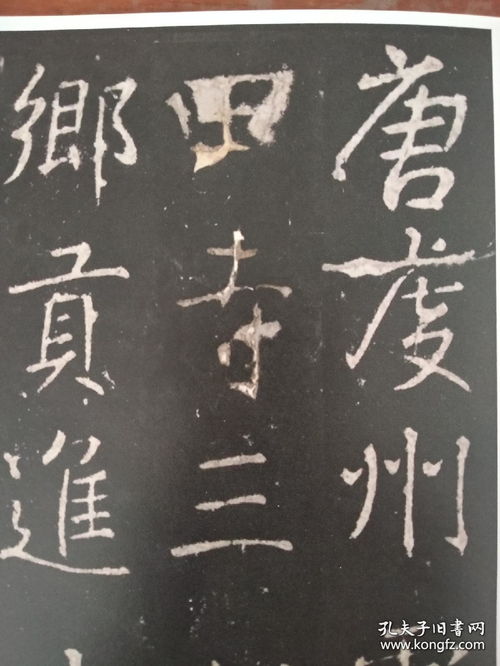 唐虔州
寺三
鄉貢進
孔夫子旧书网
kongfz.com